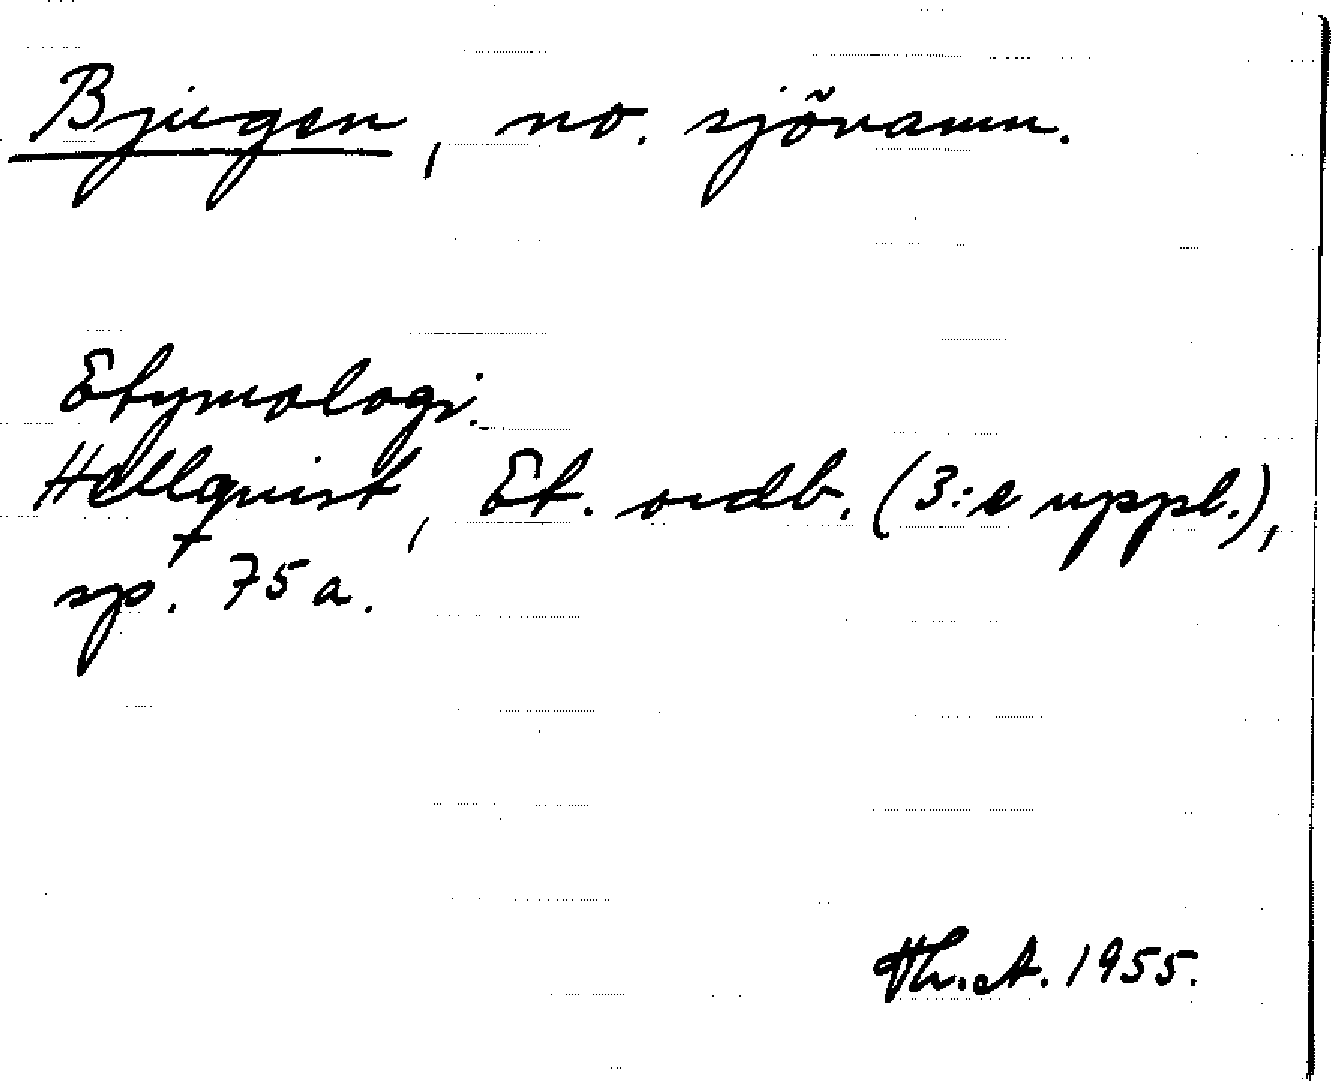 Bjugen, no. sjönamn.
Etymologi.
Hellquist, Et. ordb. (3:e uppl.),
sp. 75 a.
Th. A. 1955.